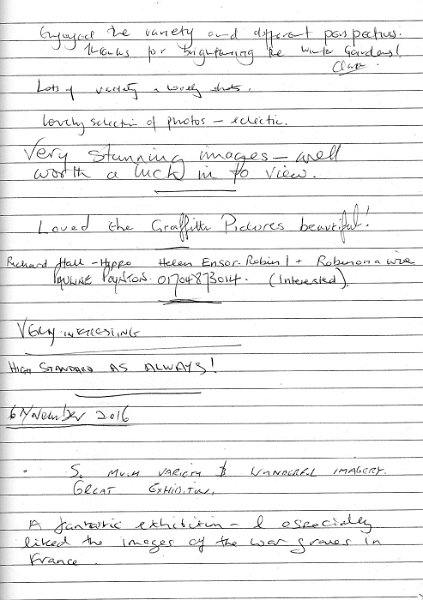 Enjoyed the variety and different perspectives.
Thanks for brightening the Winter Gardens!
Lots of variety & lovely shots.
Lovely selection of photos – eclectic.
Very stunning images – well
worth a luck in to view.
Loved the Graffitti Pictures beautiful!
Richard Hall - Hippo Helen Ensor - Robin 1 + Robin on a wire
PAULINE POYNTON. 01704873014. (Interested)
VERY INTERESTING
HIGH STANDARD AS ALWAYS!
6 November 2016
So MUCH VARIETY & WONDERFUL IMAGERY.
GREAT EXHIBITION.
A fantastic exhibition – I especially
liked the images of the war graves in
France.